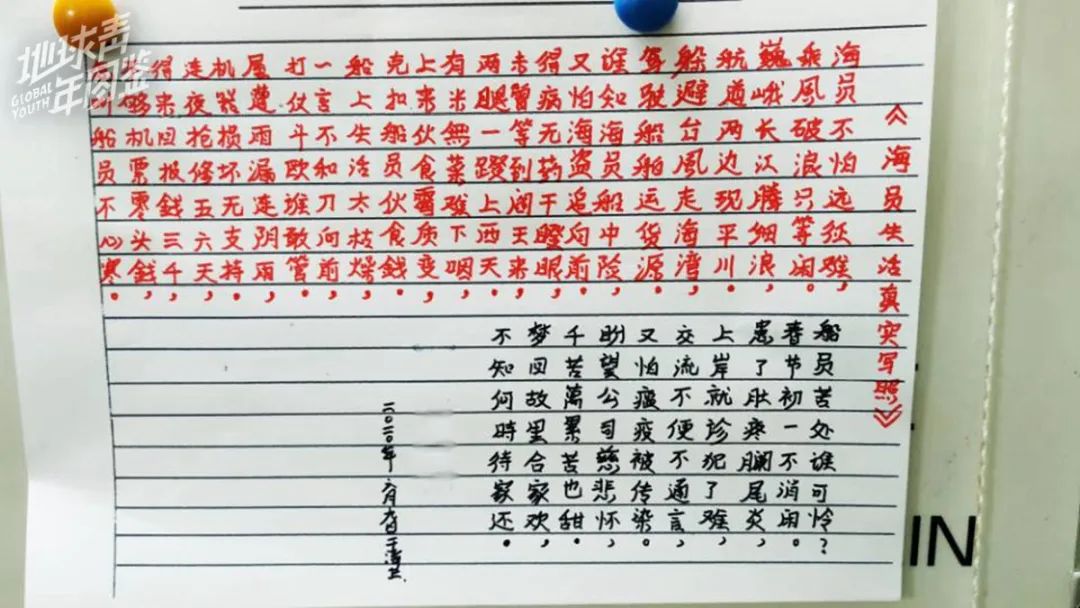 地球青年图鉴
GLOBAL YOUTH
《海员生活真实写照》
海员不怕远征难，
乘風破浪只等闲。
巍峨长江腾细浪，
航道两边现平川。
躲避台風走海湾，
驾驶船舶运货源，
谁知海员船中险，
又怕海盗追向前。
得病无药干瞪眼，
未醫等到阎王来，
两腿一蹬上西天。
有米無菜难下咽，
上来伙食霉质变，
克扣船员伙食錢，
船上生活太枯燥，
一言不和刀向前。
打仗斗欧谁敢管，
屋遭雨漏连阴雨，
机械损坏无支持，
连夜抢修五六天，
得来回报錢三千，
够机票零头錢，
船员不心寒。
船员苦处谁可怜？
春节初一不消闲。
患了肚疼阑尾炎，
上岸就诊犯了难，
交流不便不通言，
又怕瘟疫被传染。
盼望公司慈悲怀，
千苦萬累苦也甜，
梦回故里合家欢，
不知何時待家还。
二〇二〇年六月九日于
IN